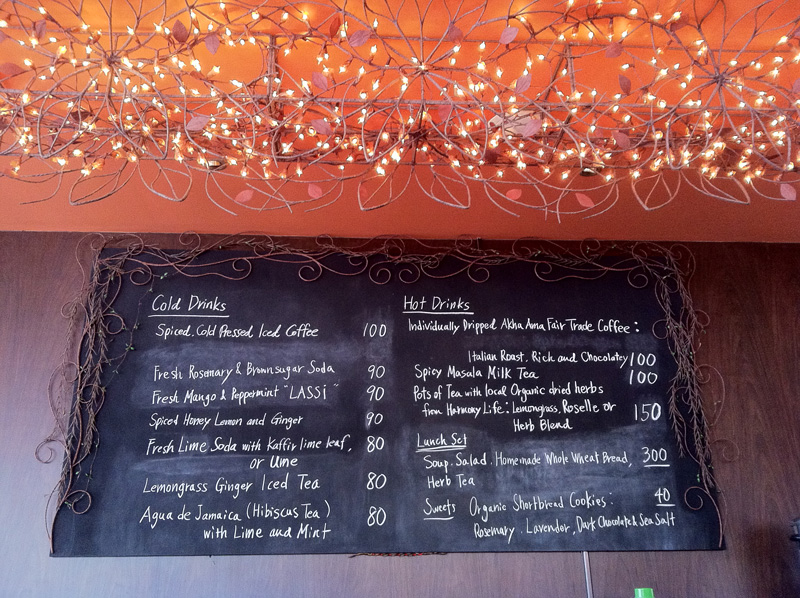 Cold Drinks
Spiced. Cold Pressed Iced Coffee 100
Fresh Rosemary & Brownsugar Soda 90
Fresh Mango & Peppermint "LASSI" 90
Spiced Honey Lemon and Ginger 90
Fresh Lime Soda with Kaffir lime leaf, 80
or Ume
Lemongrass Ginger Iced Tea 80
Agua de Jamaica (Hibiscus Tea) 80
with Lime and Mint
Hot Drinks
Individually Dripped Akha Ama Fair Trade Coffee:
Italian Roast. Rich and Chocolatey 100
Spicy Masala Milk Tea 100
Pots of Tea with local Organic dried herbs
from Harmony Life: Lemongrass, Roselle or 150
Herb Blend
Lunch Set
Soup. Salad. Homemade Whole Wheat Bread, 300
Herb Tea
Sweets Organic Shortbread Cookies: 40
Rosemary. Lavender, Dark Chocolate & Sea Salt